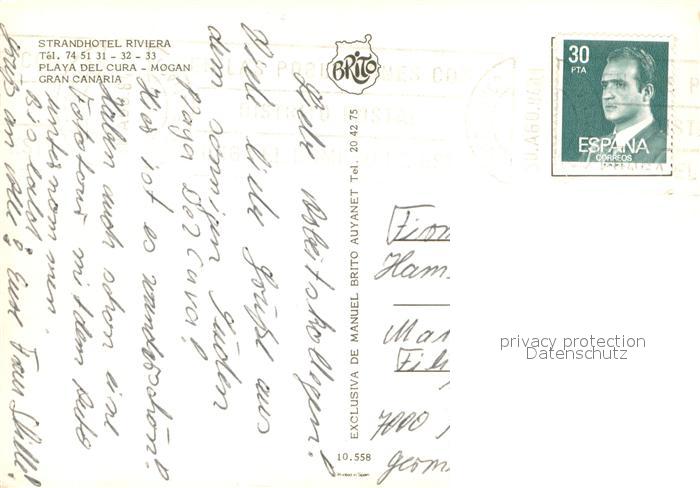 STRANDHOTEL RIVIERA
Tél. 74 51 31 - 32 - 33
PLAYA DEL CURA - MOGAN
GRAN CANARIA
BRITO
30
PTA
ESPAÑA
CORREOS
Liebe Arbeitskollegen!
Viele liebe Grüße aus
dem sonnigen Süden
Playa del Cura!
Hier ist es wunderschön!
Haben auch schon eine
Fototour mit dem Auto
unternommen.
Bis bald!
Gruß an alle! Eure Frau
EXCLUSIVA DE MANUEL BRITO AUYANET Tel. 20 42 75
10.558
Printed in Spain
7000
Germ
privacy protection
Datenschutz